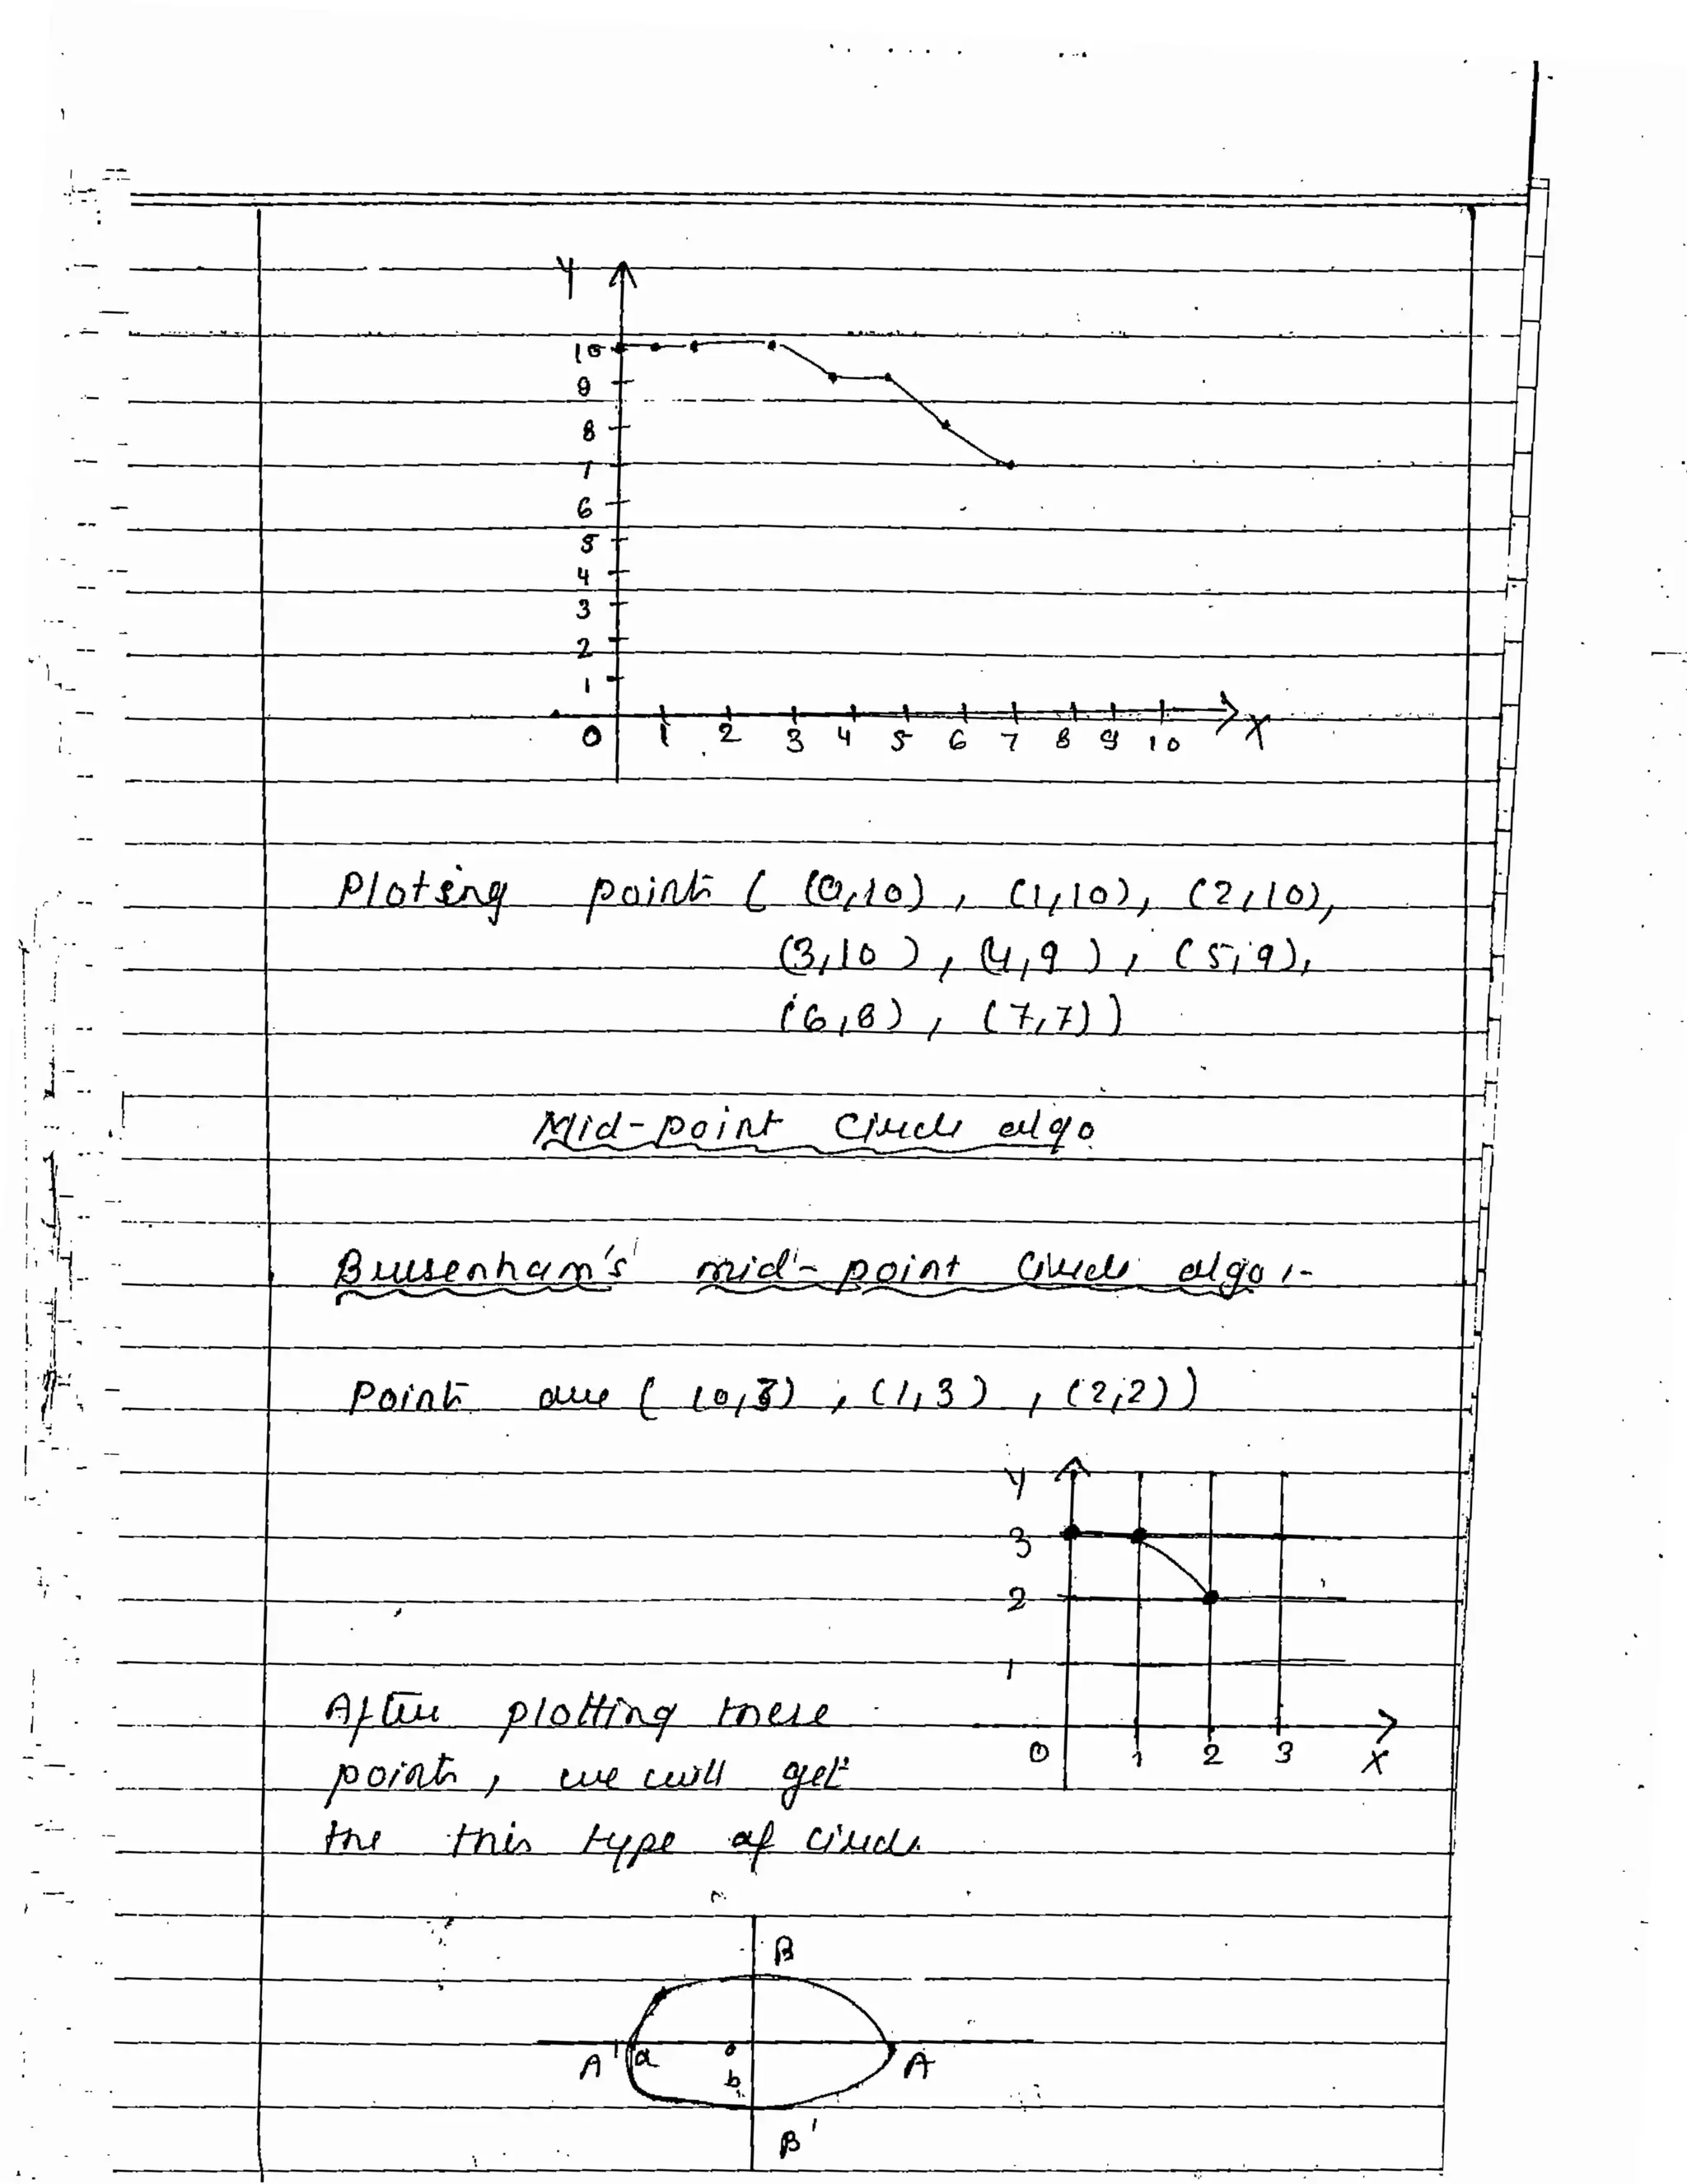 Y
10
9
8
7
6
5
4
3
2
1
0 1 2 3 4 5 6 7 8 9 10 X
Ploting points ( (0,10) , (1,10), (2,10),
(3,10) , (4,9) , (5,9),
(6,8) , (7,7))
Mid-point Circle algo
Bresenham's mid-point Circle algo :-
Points are ( (0,3) , (1,3) , (2,2))
Y
3
2
1
0 1 2 3 X
After plotting these
points, we will get
the this type of circle.
B
A' a o A
b
B'